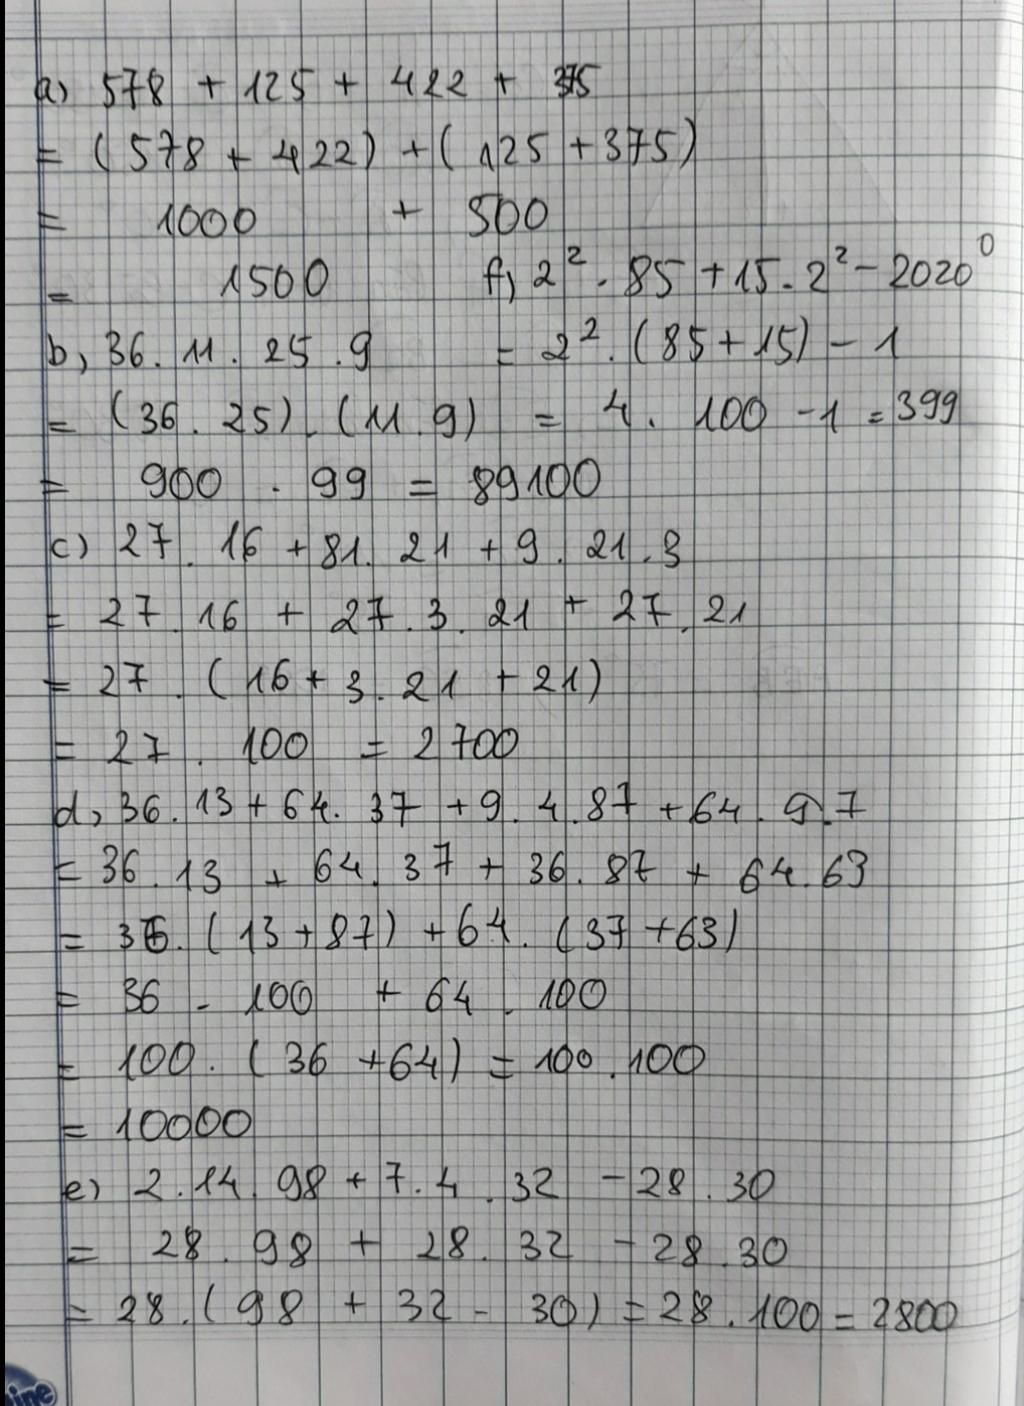 a) 578 + 125 + 422 + 375
= (578 + 422) + (125 + 375)
= 1000 + 500
= 1500
b, 36. 11. 25. 9
= (36. 25). (11. 9)
= 900 . 99 = 89100
f, 2² . 85 + 15. 2² - 2020⁰
= 2². (85 + 15) - 1
= 4. 100 - 1 = 399
c) 27. 16 + 81. 21 + 9. 21. 3
= 27. 16 + 27. 3. 21 + 27. 21
= 27. (16 + 3. 21 + 21)
= 27. 100 = 2700
d, 36. 13 + 64. 37 + 9. 4. 87 + 64. 9. 7
= 36. 13 + 64. 37 + 36. 87 + 64. 63
= 36. (13 + 87) + 64. (37 + 63)
= 36 . 100 + 64 . 100
= 100. (36 + 64) = 100. 100
= 10000
e) 2. 14. 98 + 7. 4. 32 - 28. 30
= 28. 98 + 28. 32 - 28. 30
= 28. (98 + 32 - 30) = 28. 100 = 2800